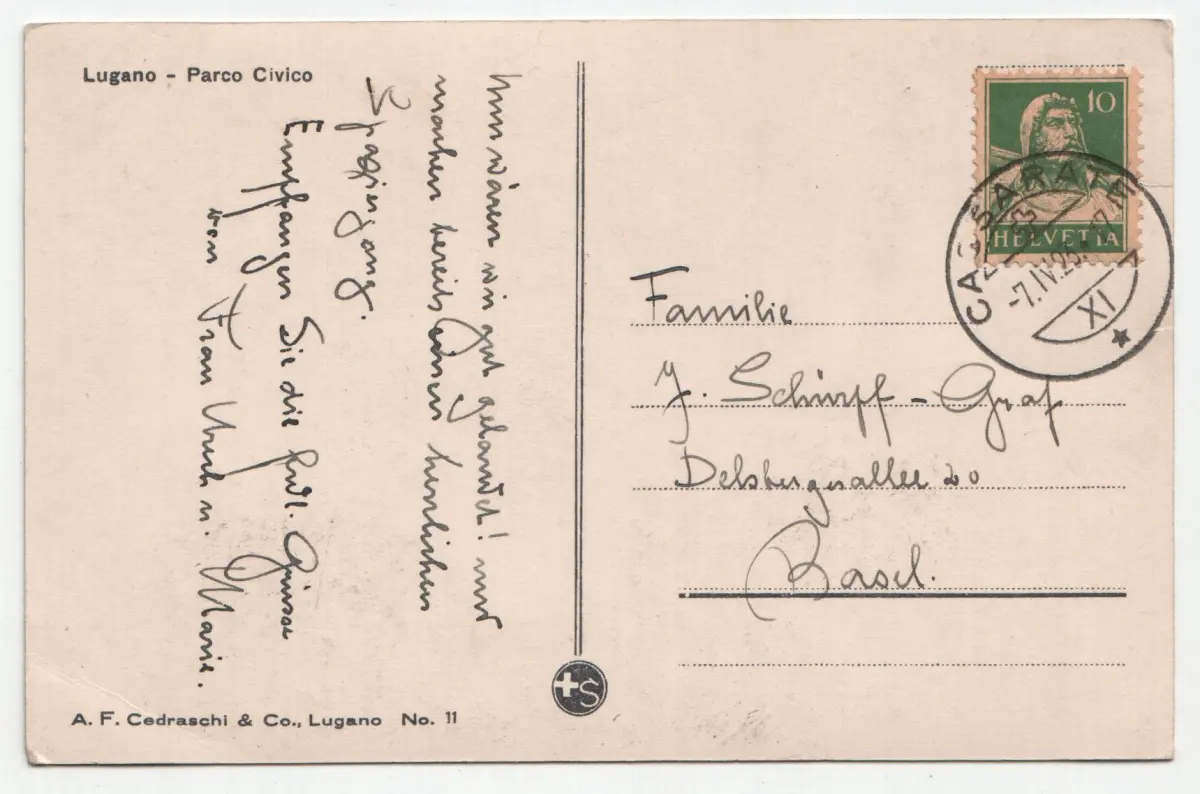 Lugano - Parco Civico
Nun wären wir gut gelandet! und
machen bereits einen herrlichen
Spaziergang.
Empfangen Sie die frdl. Grüsse
von Frau u. Marie.
A. F. Cedraschi & Co., Lugano No. 11
+S
10
HELVETIA
CASSARATE
-7.IV.25.-17
XI
Familie
J. Schürpf-Graf
Delsbergerallee 20
Basel.